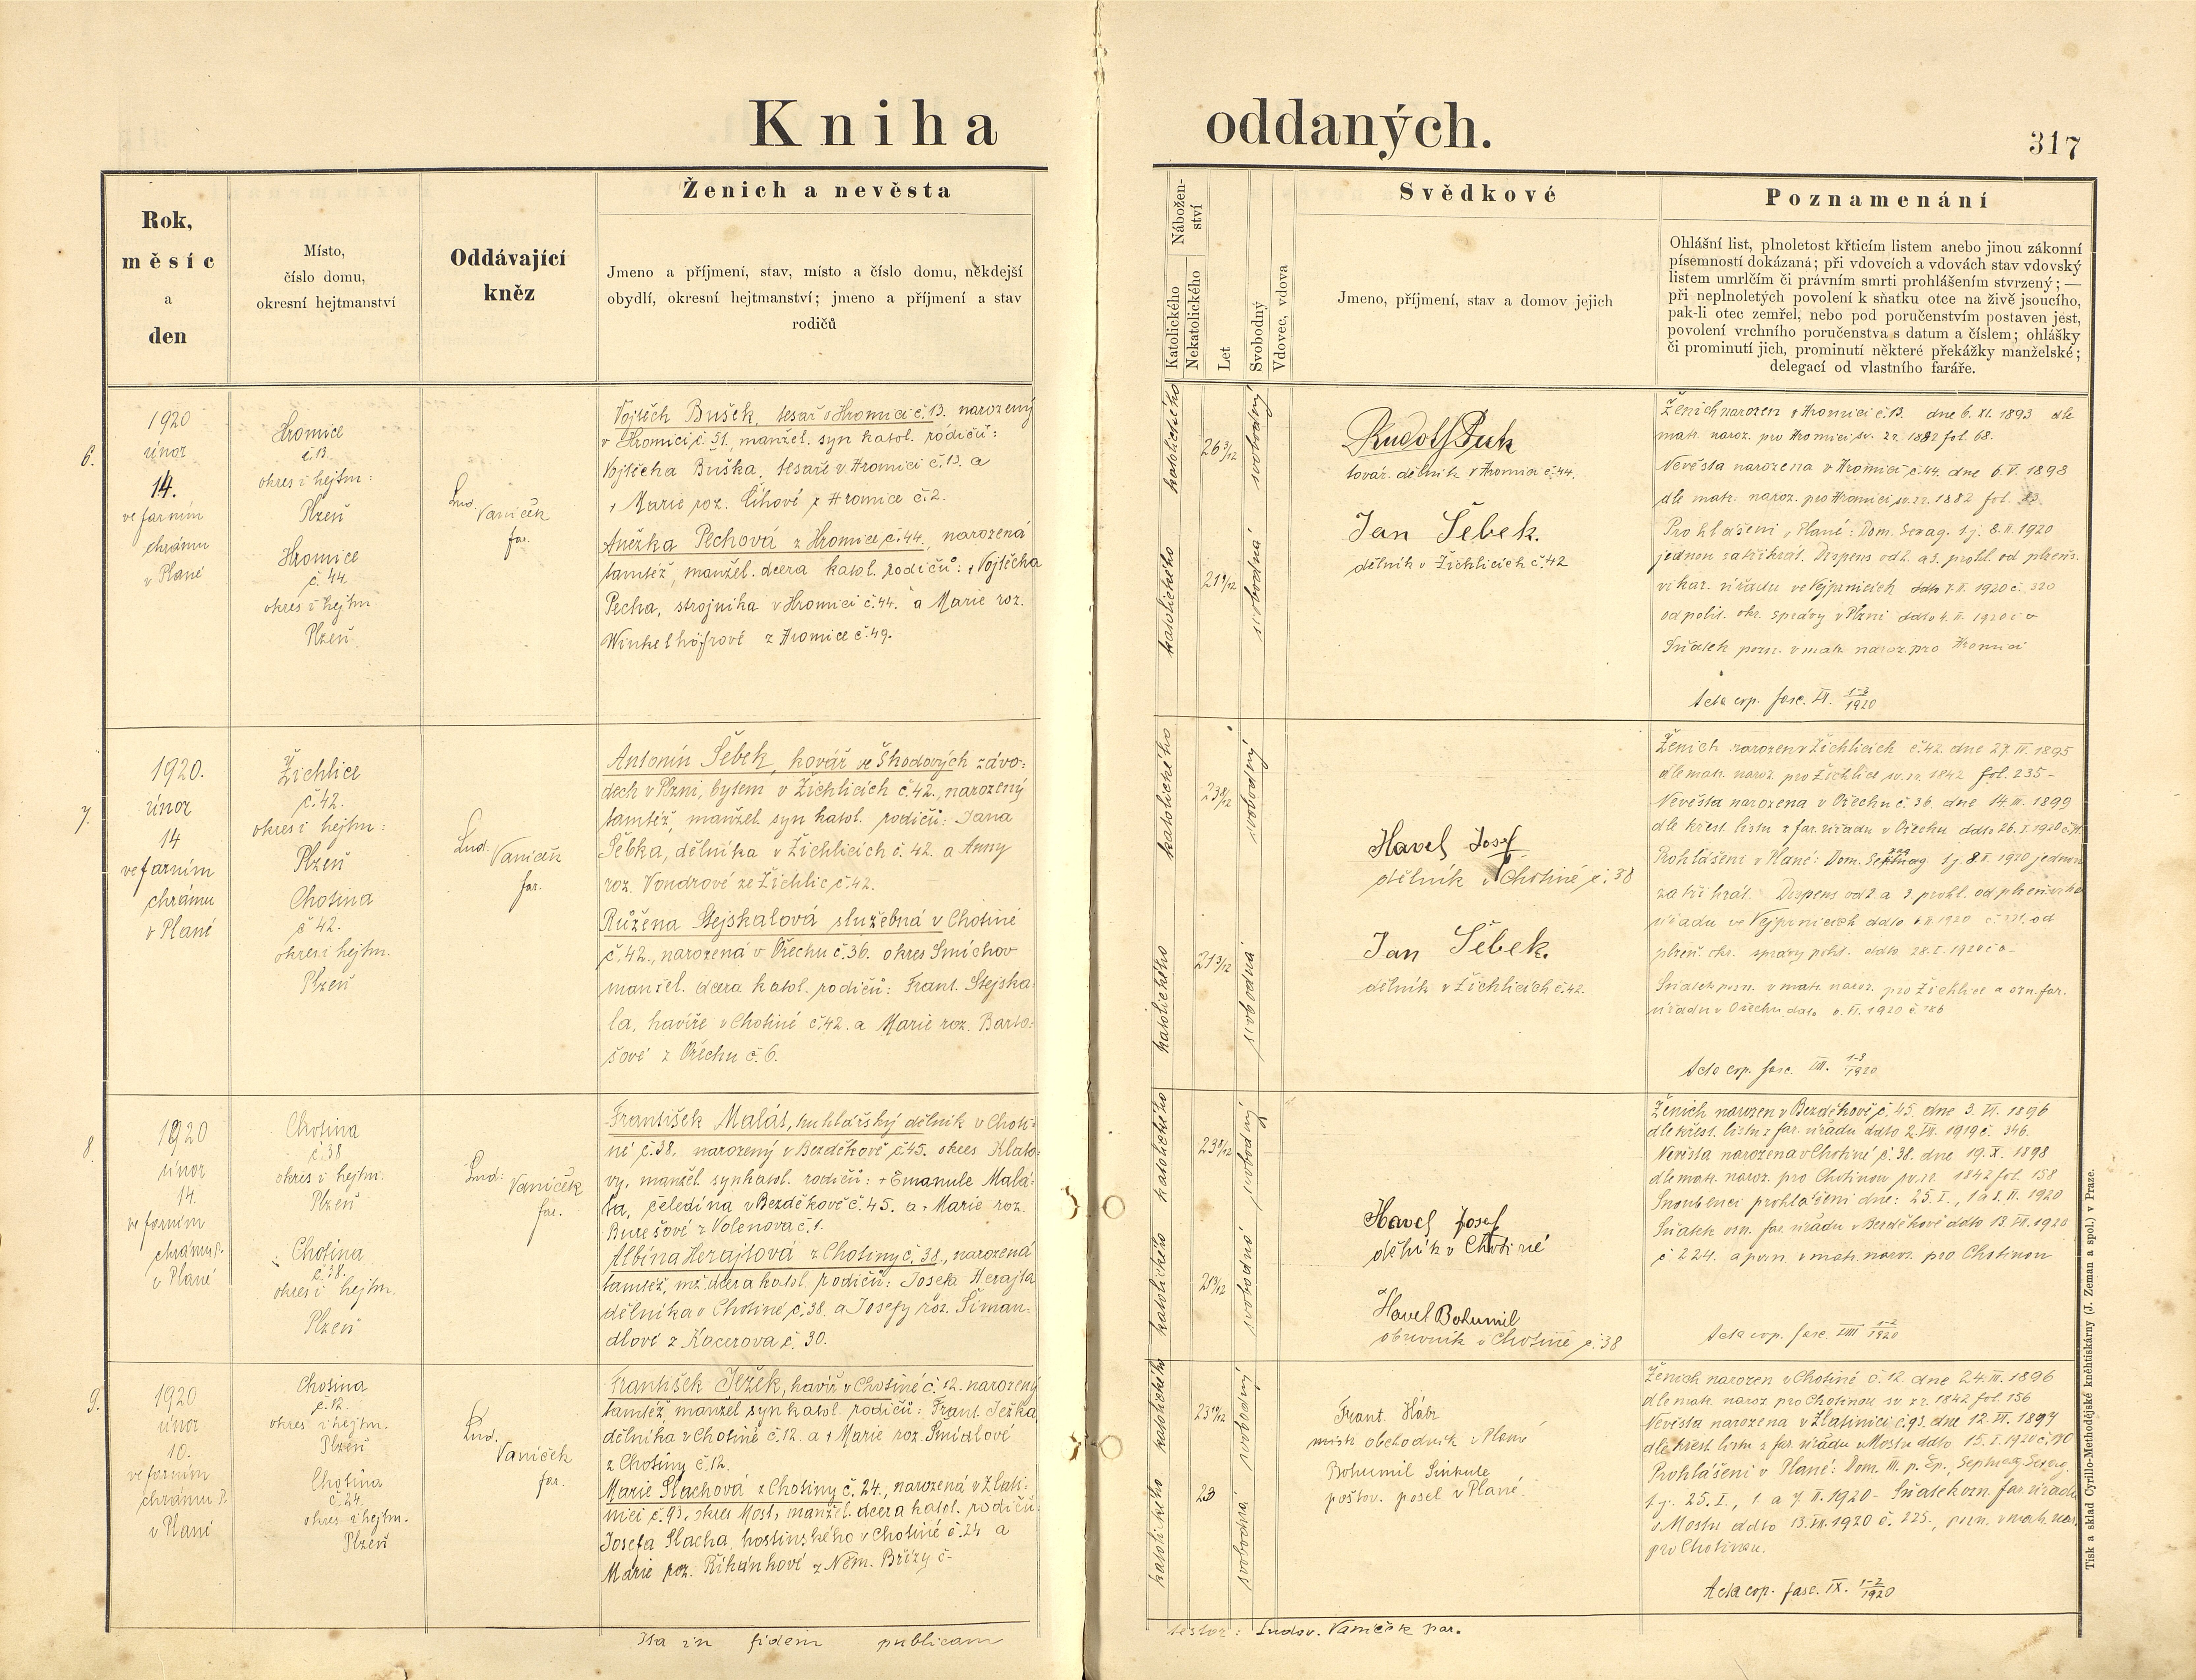 Kniha oddaných.
317
Rok,
měsíc
a
den
Místo,
číslo domu,
okresní hejtmanství
Oddávající
kněz
Ženich a nevěsta
Jmeno a příjmení, stav, místo a číslo domu, někdejší
obydlí, okresní hejtmanství; jmeno a příjmení a stav
rodičů
Nábožen-
ství
Katolického
Nekatolického
Let
Svobodný
Vdovec, vdova
Svědkové
Jmeno, příjmení, stav a domov jejich
Poznamenání
Ohlášní list, plnoletost křticím listem anebo jinou zákonní
písemností dokázaná; při vdovcích a vdovách stav vdovský
listem umrlčím či právním smrti prohlášením stvrzený; —
při neplnoletých povolení k sňatku otce na živě jsoucího,
pak-li otec zemřel, nebo pod poručenstvím postaven jest,
povolení vrchního poručenstva s datum a číslem; ohlášky
či prominutí jich, prominutí některé překážky manželské;
delegací od vlastního faráře.
6.
1920
únor
14.
ve farním
chrámu
v Plané
Hromice
č.13.
okres i hejtm:
Plzeň
Hromice
č.44.
okres i hejtm.
Plzeň
Lud. Vaníček
far.
Vojtěch Bušek, tesař v Hromici č.13. narozený
v Hromici č.51, manžel. syn katol. rodičů:
Vojtěcha Buška, tesaře v Hromici č.13. a
† Marie roz. Líhové z Hromice č.2.
Anežka Pechová z Hromice č.44., narozená
tamtéž, manžel. dcera katol. rodičů: † Vojtěcha
Pecha, strojníka v Hromici č.44. a Marie roz.
Winkelhöfrové z Hromice č.49.
katolického
26 3/12
svobodný
katolického
21 9/12
svobodná
Rudolf Puk
továr. dělník v Hromici č.44.
Jan Šebek.
dělník v Žichlicích č.42
Ženich narozen v Hromici č.13. dne 6. XI. 1893 dle
matr. naroz. pro Hromici sv. zr. 1882 fol. 68.
Nevěsta narozena v Hromici č.44. dne 6 V. 1898
dle matr. naroz. pro Hromici sv. zr. 1882 fol. 83.
Prohlášeni v Plané: Dom. Sexag. t.j. 8. II. 1920
jednou za třikrát. Dispens od 2. a 3. prohl. od plzeň.
vikar. úřadu ve Vejprnicích ddto 7. II. 1920 č. 320
od polit. okr. správy v Plzni ddto 4. II. 1920
Sňatek pozn. v matr. naroz. pro Hromici
Acta cop. fasc. VI. 1-3/1920
7.
1920.
únor
14
ve farním
chrámu
v Plané
Žichlice
č.42.
okres i hejtm:
Plzeň
Chotina
č 42.
okres i hejtm.
Plzeň
Lud. Vaníček
far.
Antonín Šebek, kovář ve Škodových závo-
dech v Plzni, bytem v Žichlicích č.42., narozený
tamtéž, manžel. syn katol. rodičů: Jana
Šebka, dělníka v Žichlicích č. 42. a Anny
roz. Vondrové ze Žichlic č.42.
Růžena Stejskalová služebná v Chotiné
č.42., narozená v Ořechu č.36. okres Smíchov
manžel. dcera katol. rodičů: Frant. Stejska-
la, havíře v Chotiné č.42. a Marie roz. Barto-
šové z Ořechu č.6.
katolického
svobodný
katolického
svobodná
Havel Josef
dělník v Chotiné č.38
Jan Šebek.
dělník v Žichlicích č.42.
Ženich narozen v Žichlicích č.42. dne 27. IV. 1895
dle matr. naroz. pro Žichlice sv. zr. 1842 fol. 235-
Nevěsta narozena v Ořechu č. 36. dne 14. III. 1899
dle křest. listu z far. úřadu v Ořechu ddto 26. I. 1920
Prohlášeni v Plané: Dom. t.j. 8. II. 1920 jednou
za třikrát. Dispens od 2. a 3. prohl. od plzeň.
úřadu ve Vejprnicích ddto 1920 od
plzeň. okr. správy polit. ddto 28. I. 1920
Sňatek pozn. v matr. naroz. pro Žichlice a ozn. far.
úřadu v Ořechu ddto 1920 č. 186
Acta cop. fasc. VII. 1-3/1920
8
1920
únor
14.
ve farním
chrámu
v Plané
Chotina
č.38
okres i hejtm.
Plzeň
Chotina
č.38.
okres i hejtm.
Plzeň
Lud. Vaníček
far.
František Malát, truhlářský dělník v Choti-
né č.38. narozený v Bezděkově č.45. okres Klato-
vy, manžel. syn katol. rodičů: † Emanule Malá-
ta, čeledína v Bezděkově č.45. a † Marie roz.
Burešové z Volenova č.1.
Albína Herajtová z Chotiny č.38., narozená
tamtéž, mž. dcera katol. rodičů: Josefa Herajta
dělníka v Chotiné č.38. a Josefy roz. Šiman-
dlové z Kacerova č. 30.
katolického
svobodný
katolického
svobodná
Havel Josef
dělník v Chotiné
Havel Bohumil
obuvník v Chotiné č.38
Ženich narozen v Bezděkově č. 45. dne 3. VI. 1896
dle křest. listu z far. úřadu ddto 2. VII. 1919 č. 346.
Nevěsta narozena v Chotiné č. 38. dne 19. X. 1898
dle matr. naroz. pro Chotinou sv. zr. 1842 fol. 158
Snoubenci prohlášeni dne: 25. I., 1. a 8. II. 1920
Sňatek ozn. far. úřadu v Bezděkově ddto 13. VII. 1920
č 224. a pozn. v matr. naroz. pro Chotinou
Acta cop. fasc. VIII 1-2/1920
9.
1920
únor
10.
ve farním
chrámu P.
v Plané
Chotina
č.12.
okres i hejtm.
Plzeň
Chotina
č.24.
okres i hejtm.
Plzeň
Lud. Vaníček
far.
František Ježek, havíř v Chotiné č.12. narozený
tamtéž, manžel syn katol. rodičů: Frant. Ježka,
dělníka v Chotiné č.12. a † Marie roz. Šmídlové
z Chotiny č.12.
Marie Slachová z Chotiny č.24., narozená v Zlati-
nici č.93, okres Most, manžel. dcera katol. rodičů
Josefa Slacha, hostinského v Chotiné č.24 a
Marie roz. Říhánkové z Něm. Břízy č-
katolického
svobodný
katolického
23
svobodná
Frant. Hábr
místr obchodník v Plané
Bohumil Sinkule
poštov. posel v Plané.
Ženich narozen v Chotiné č.12. dne 24. III. 1896
dle matr. naroz. pro Chotinou sv. zr. 1842 fol 156
Nevěsta narozena v Zlatinici č.93. dne 12. VI. 1897
dle křest. listu z far. úřadu v Mostu ddto 15. I. 1920
Prohlášeni v Plané: Dom. III. p. Ep., Septuag. Sexag.
t.j. 25. I., 1. a 7. II. 1920 - Sňatek ozn. far. úřadu
v Mostu ddto 13. VII. 1920 č. 225., pozn. v matr. nar.
pro Chotinou.
Acta cop. fasc. IX. 1-2/1920
Ita in fidem publicam
testor: Ludov. Vaníček par.
Tisk a sklad Cyrillo-Methodějské kněhtiskárny (J. Zeman a spol.) v Praze.